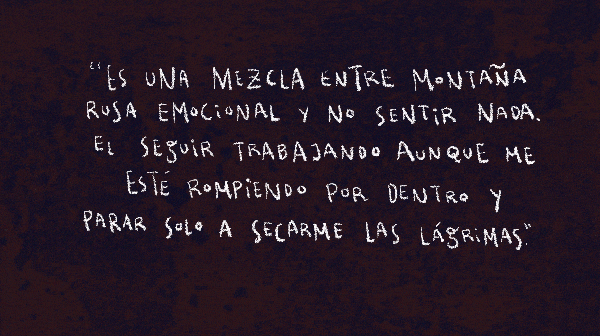 “ES UNA MEZCLA ENTRE MONTAÑA
RUSA EMOCIONAL Y NO SENTIR NADA.
EL SEGUIR TRABAJANDO AUNQUE ME
ESTÉ ROMPIENDO POR DENTRO Y
PARAR SOLO A SECARME LAS LÁGRIMAS.”